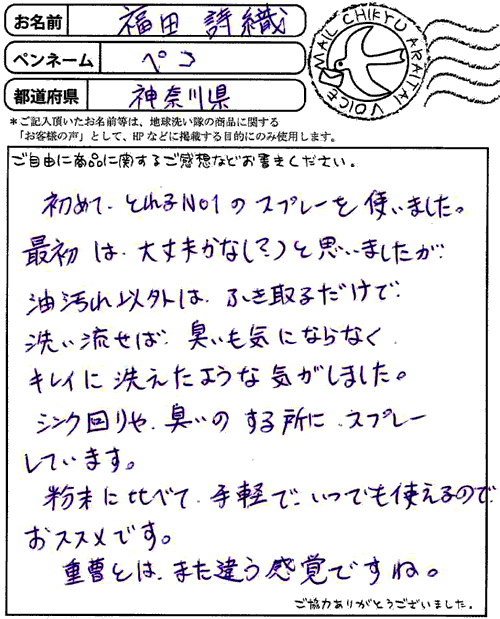 お名前 福田 詩織
ペンネーム ペコ
都道府県 神奈川県
MAIL CHIKYU ARAITAI VOICE
＊ご記入頂いたお名前等は、地球洗い隊の商品に関する
「お客様の声」として、HPなどに掲載する目的にのみ使用します。
ご自由に商品に関するご感想などお書きください。
初めて、とれるNO1のスプレーを使いました。
最初は、大丈夫かな(?)と思いましたが
油汚れ以外は、ふき取るだけで
洗い流せば、臭いも気にならなく
キレイに洗えたような気がしました。
シンク回りや、臭いのする所に、スプレー
しています。
粉末に比べて、手軽で、いつでも使えるので
おススメです。
重曹とは、また違う感覚ですね。
ご協力ありがとうございました。